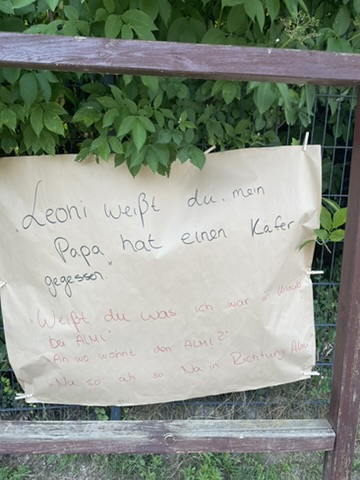 "Leoni weißt du, mein
Papa hat einen Kafer
gegessen."
"Weißt du was ich war in Urlaub
bei ALMI"
"Ah wo wohnt den ALMI?"
"Na so ah so Na in Richtung Almi"